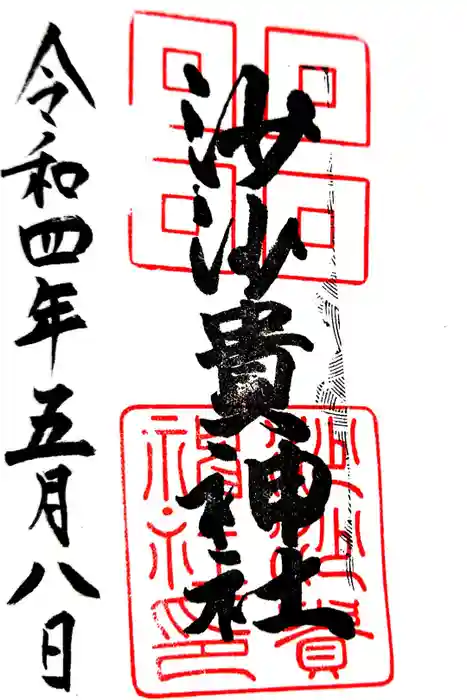 沙沙貴神社
令和四年五月八日
貴
神社印